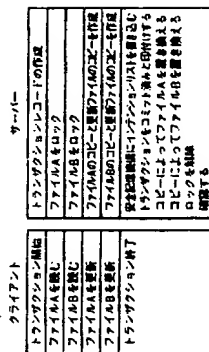 クライアント
トランザクション開始
ファイルAを読む
ファイルBを読む
ファイルAを更新
ファイルBを更新
トランザクション終了
サーバー
トランザクションレコードの作成
ファイルAをロック
ファイルBをロック
ファイルAのコピーと更新ファイルのコピーを作成
ファイルBのコピーと更新ファイルのコピーを作成
安全記憶機構にインテンションリストを書き込む
トランザクションをコミット済みと印付けする
コピーによってファイルAを置き換える
コピーによってファイルBを置き換える
ロックを解除
確認する